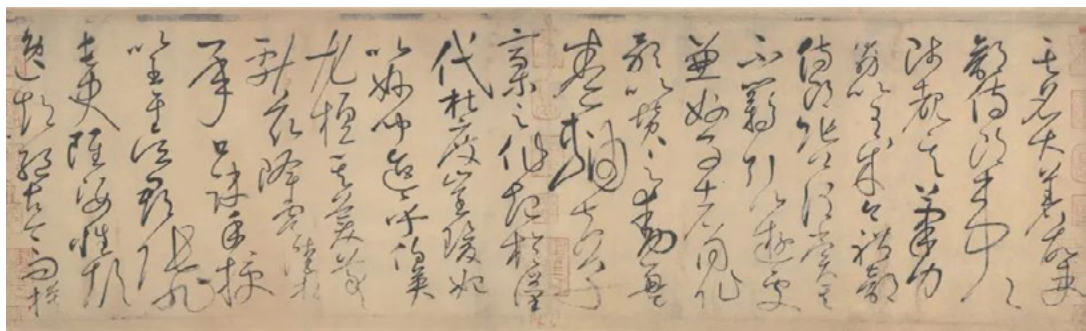 其名大著故吏
部侍郎韋公
陟覩其筆力
勗以有成今禮部
侍郎張公謂賞其
不羈引以遊處
兼好事者同作
歌以贊之動盈
卷軸夫草
稾之作起於漢
代杜度崔瑗始
以妙聞迨乎伯英
尤擅其美羲
獻茲降虞陸相
承口訣手授
以至于吳郡張旭
長史雖姿性顛
逸超絕古今而模